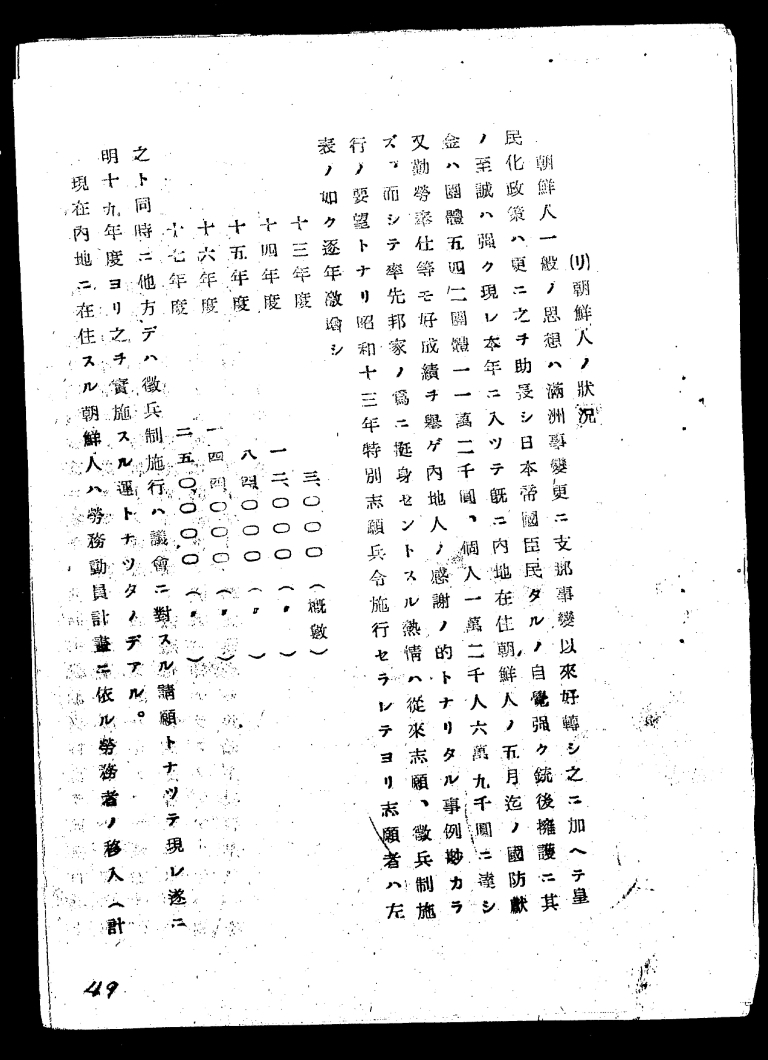 (リ)朝鮮人ノ狀況
朝鮮人一般ノ思想ハ滿洲事變更ニ支那事變以來好轉シ之ニ加ヘテ皇
民化政策ハ更ニ之ヲ助長シ日本帝國臣民タルノ自覺强ク銃後擁護ニ其
ノ至誠ハ强ク現レ本年ニ入ツテ既ニ內地在住朝鮮人ノ五月迄ノ國防獻
金ハ團體五四二團體一一萬二千圓、個人一萬二千人六萬九千圓ニ達シ
又勤勞奉仕等モ好成績ヲ擧ゲ內地人ノ感謝ノ的トナリタル事例尠カラ
ズ、而シテ率先邦家ノ爲ニ挺身セントスル熱情ハ從來志願、徵兵制施
行ノ要望トナリ昭和十三年特別志願兵令施行セラレテヨリ志願者ハ左
表ノ如ク逐年激增シ
十三年度 三、〇〇〇(概數)
十四年度 一二、〇〇〇(〃)
十五年度 八四、〇〇〇(〃)
十六年度 一四四、〇〇〇(〃)
十七年度 二五〇、〇〇〇(〃)
之ト同時ニ他方デハ徵兵制施行ハ議會ニ對スル請願トナツテ現レ遂ニ
明十九年度ヨリ之ヲ實施スル運トナツタノデアル。
現在內地ニ在住スル朝鮮人ハ勞務動員計畫ニ依ル勞務者ノ移入(計
49